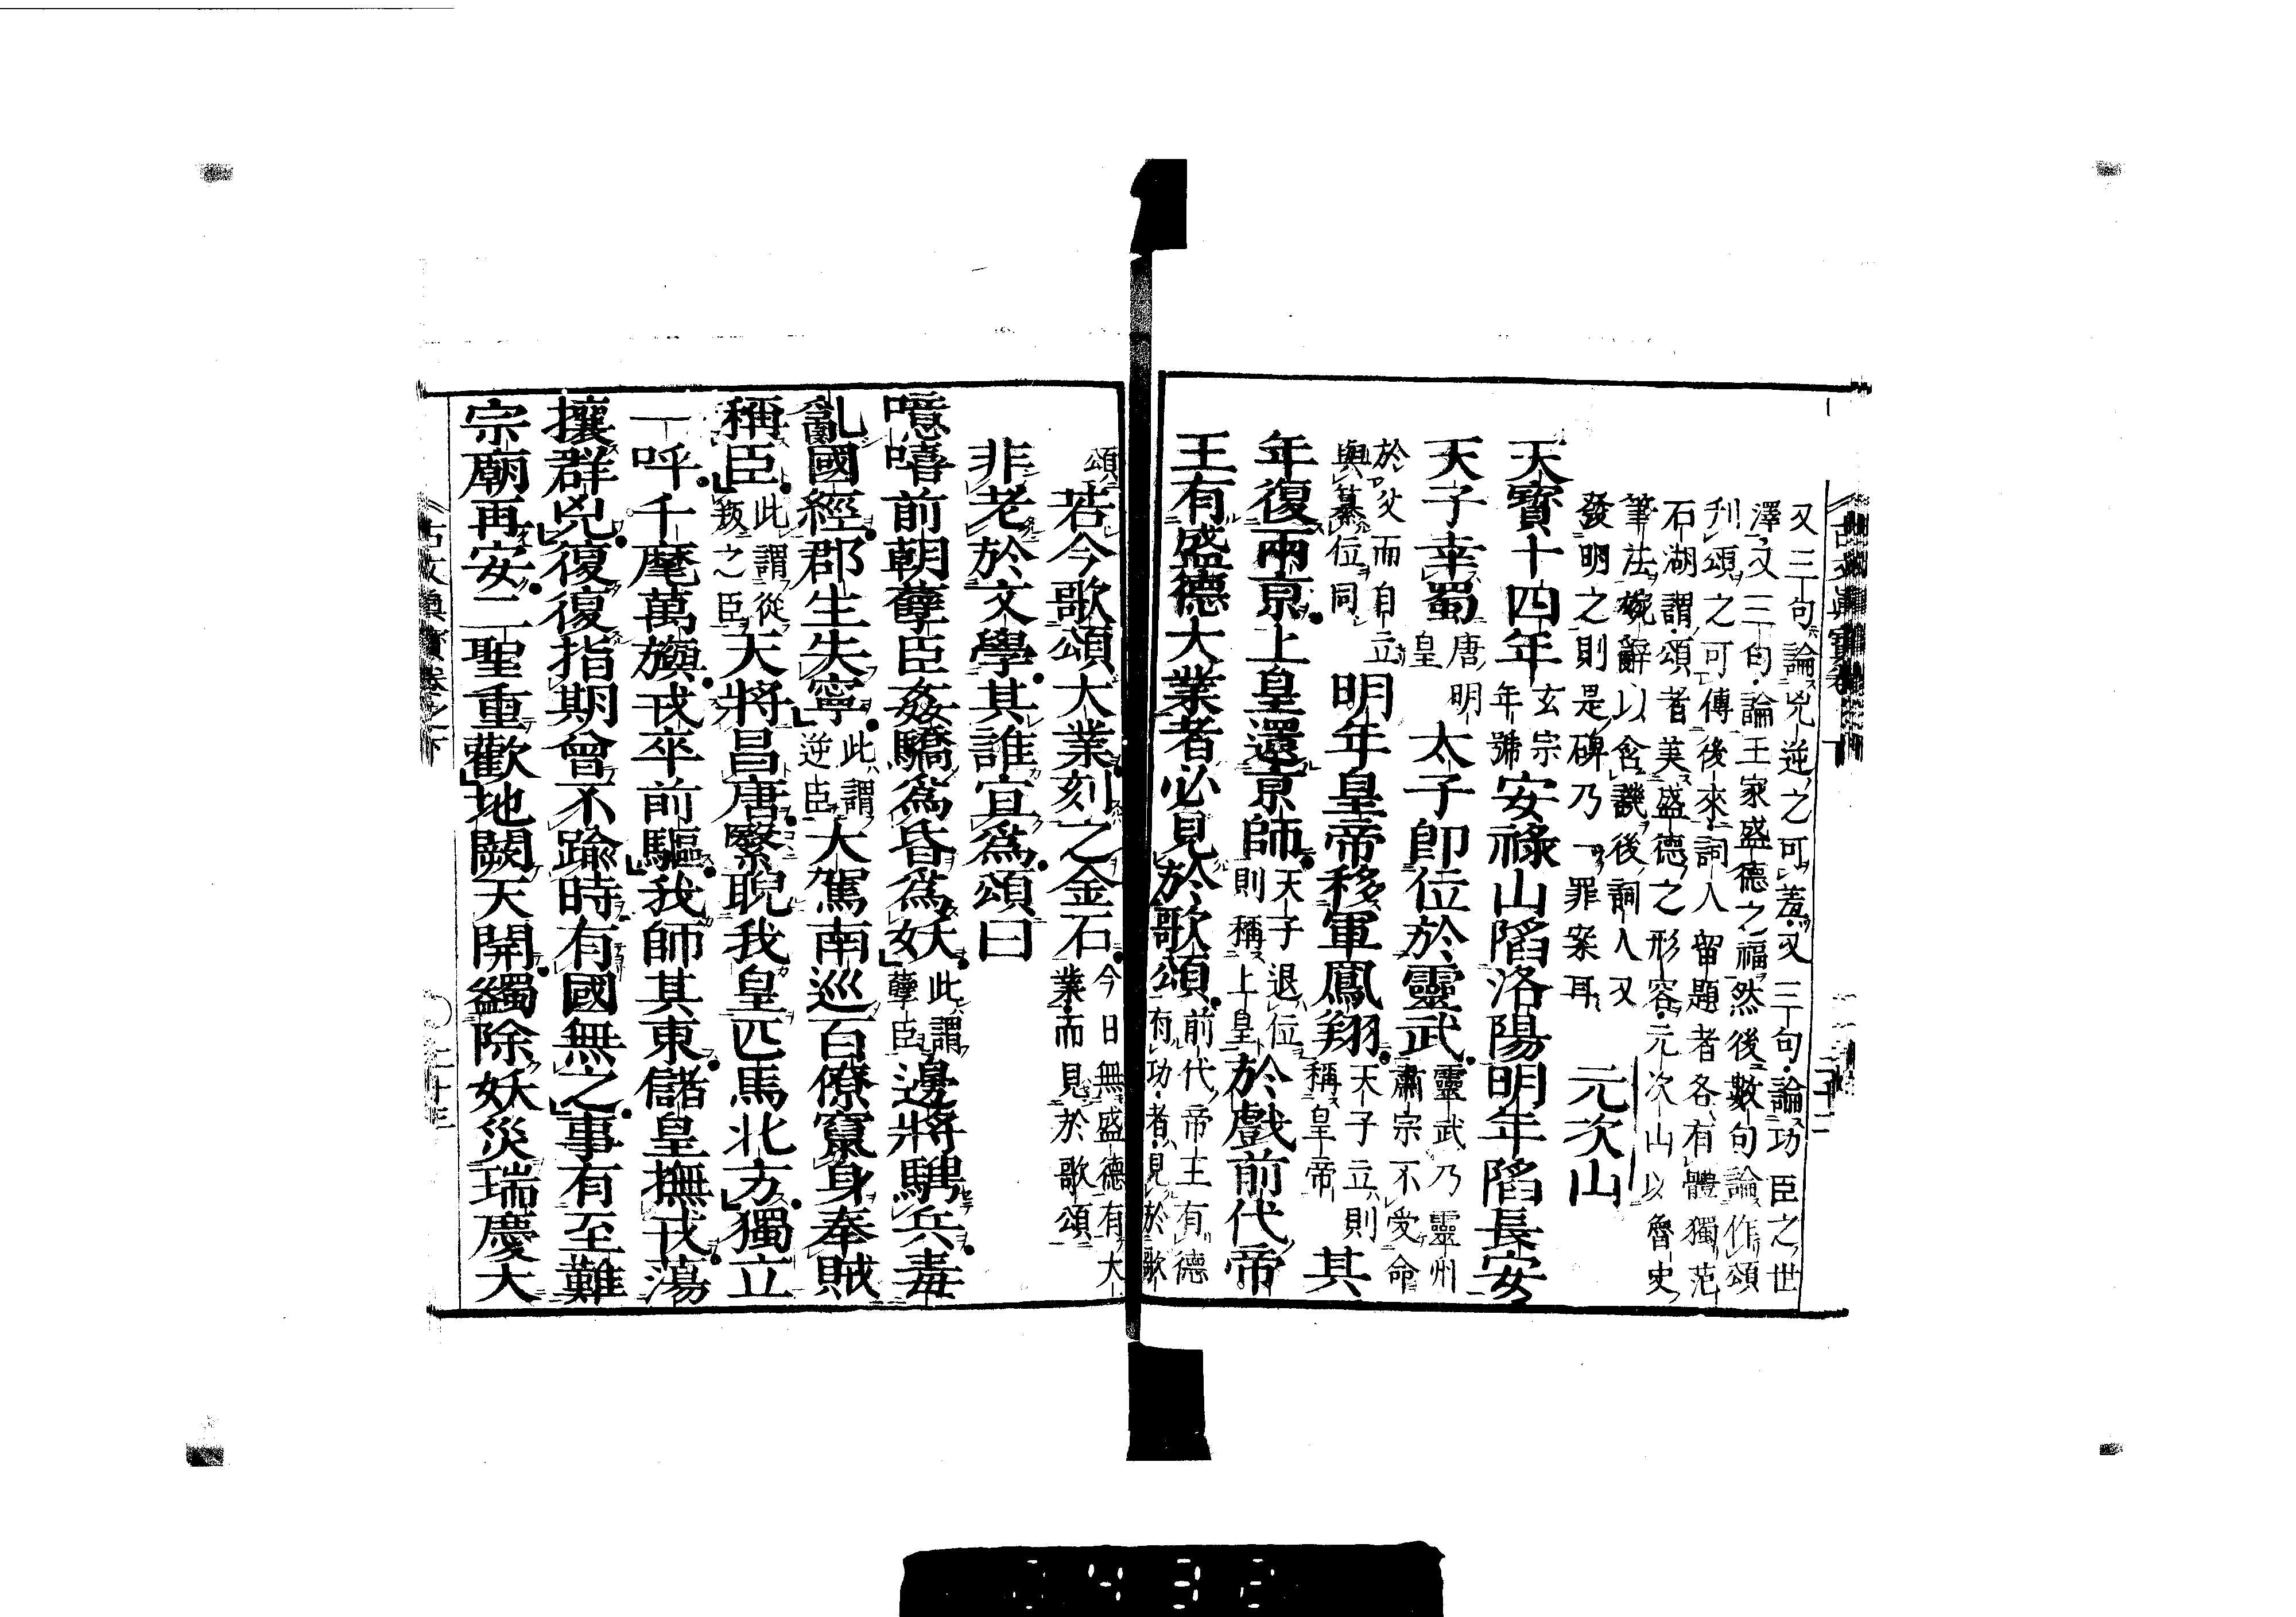 又三句論兇逆之可羞又三句論功臣之世
澤又三句論王家盛德之福然後數句論作頌
刋頌之可傳後來詞人留題者各有體獨范
石湖謂頌者美盛德之形容元次山以魯史
筆法婉辭以含譏後詞人又
發明之則是碑乃一罪案耳 元次山
天寶十四年玄宗年號安祿山陷洛陽明年陷長安
天子幸蜀唐明皇太子卽位於靈武靈武乃靈州肅宗不受命
於父而自立與篡位同明年皇帝移軍鳳翔天子立則稱皇帝其
年復兩京上皇還京師天子退位則稱上皇於戲前代帝
王有盛德大業者必見於歌頌前代帝王有德有功者見於歌
頌若今歌頌大業刻之金石今日無盛德有大業而見於歌頌
非老於文學其誰宜爲頌曰
噫嘻前朝孽臣姦驕爲昏爲妖此謂孽臣邊將騁兵毒
亂國經郡生失寧此謂逆臣大駕南巡百僚竄身奉賊
稱臣此謂從叛之臣天將昌唐繄睨我皇匹馬北方獨立
一呼千麾萬旟戎卒前驅我師其東儲皇撫戎蕩
攘群兇復復指期曾不踰時有國無之事有至難
宗廟再安二聖重歡地闢天開蠲除妖災瑞慶大